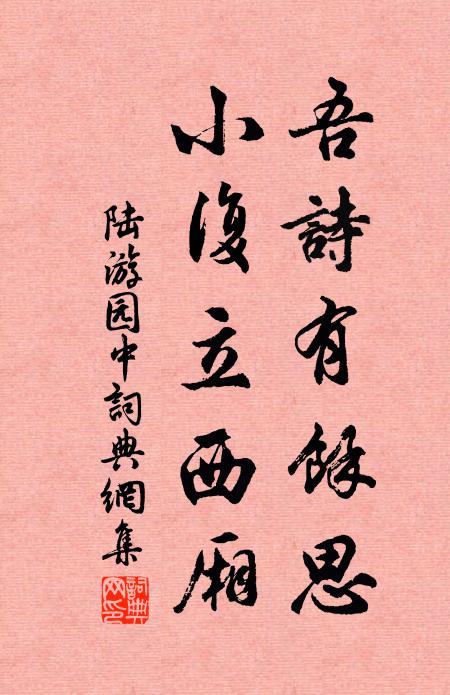 吾詩有餘思
小復立西厢
陆游园中詞典網集
詞典網印